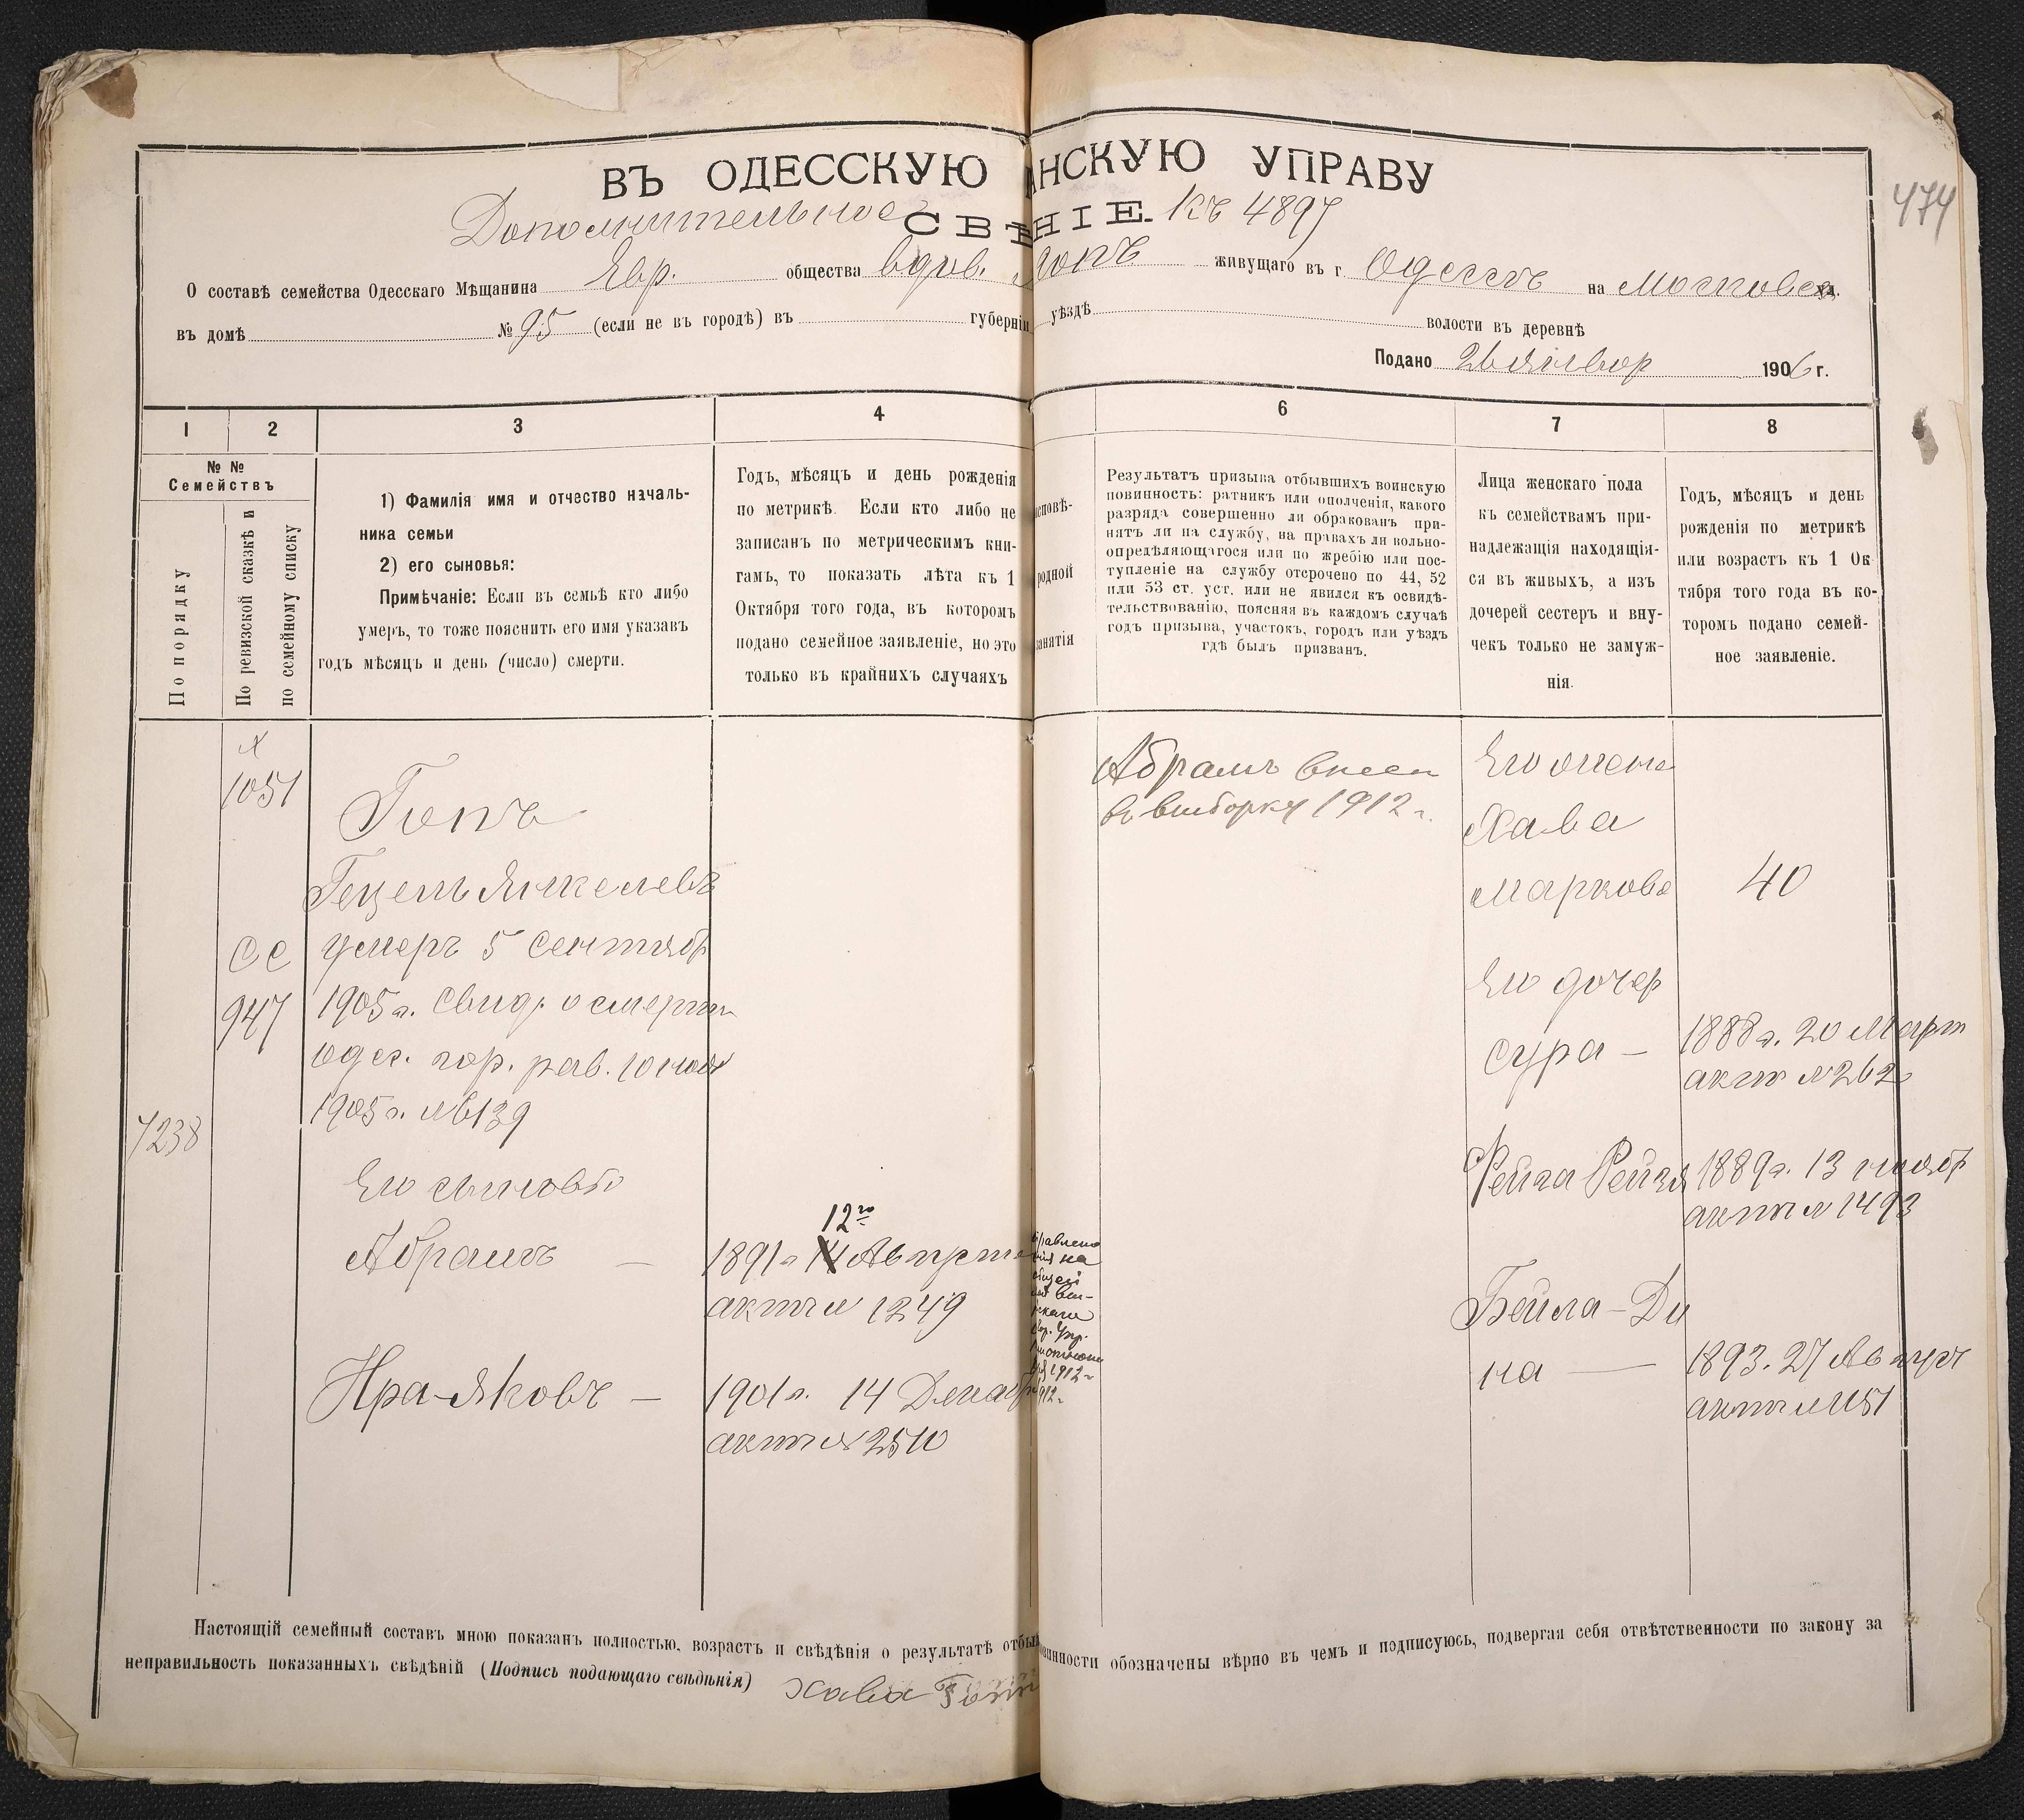 ВЪ ОДЕССКУЮ АНСКУЮ УПРАВУ
474
Дополнительное СВѢ НІЕ. къ 4897
О составѣ семейства Одесскаго Мѣщанина Евр. общества вдов. Гопъ живущаго въ г Одессѣ на Московск. ул.
въ домѣ № 95 (если не въ городѣ) въ губерніи уѣздѣ волости въ деревнѣ
Подано 26 январ 1906 г.
1 2 3 4 6 7 8
№ №
Семействъ
По порядку
По ревизской сказкѣ и
по семейному списку
1) Фамилія имя и отчество началь-
ника семьи
2) его сыновья:
Примѣчаніе: Если въ семьѣ кто либо
умеръ, то тоже пояснить его имя указавъ
годъ мѣсяцъ и день (число) смерти.
Годъ, мѣсяцъ и день рожденія
по метрикѣ. Если кто либо не
записанъ по метрическимъ кни-
гамъ, то показать лѣта къ 1
Октября того года, въ которомъ
подано семейное заявленіе, но это
только въ крайнихъ случаяхъ
исповѣ-
родной
занятія
Результатъ призыва отбывшихъ воинскую
повинность: ратникъ или ополченія, какого
разряда совершенно ли обракованъ при-
нятъ ли на службу, на правахъ ли вольно-
опредѣляющагося или по жребію или пос-
тупленіе на службу отсрочено по 44, 52
или 53 ст. уст. или не явился къ освидѣ-
тельствованію, поясняя въ каждомъ случаѣ
годъ призыва, участокъ, городъ или уѣздъ
гдѣ былъ призванъ.
Лица женскаго пола
къ семействамъ при-
надлежащія находящія-
ся въ живыхъ, а изъ
дочерей сестеръ и вну-
чекъ только не замуж-
нія.
Годъ, мѣсяцъ и день
рожденія по метрикѣ
или возрастъ къ 1 Ок
тября того года въ ко-
торомъ подано семей-
ное заявленіе.
1051
Гопъ
Гецель Янкелевъ
СС
947
умеръ 5 сентябр
1905 г. свид. о смерти
одес. гор. рав. 10 нояб
1905 г. № 6139
7238
Его сыновья
Абрамъ — 1891 г 14 12го Августа
актъ № 1249
Нра-Яковъ — 1901 г. 14 Декабр
актъ № 2510
на
1912 г
1912 г.
Абрамъ внесен
въ выборку 1912 г.
Его жена
Хава
Маркова 40
Его дочер
Сура — 1888 г. 20 Март
актъ № 262
Фейга Рейзя 1889 г. 13 ноябр
актъ № 1493
Бейла-Ди
на — 1893. 27 Август
актъ № 1151
Настоящій семейный составъ мною показанъ полностью, возрастъ и свѣдѣнія о результатѣ отбыв овинности обозначены вѣрно въ чемъ и подписуюсь, подвергая себя отвѣтственности по закону за
неправильность показанныхъ свѣдѣній (Подпись подающаго свѣдѣнія) Хава Гопп